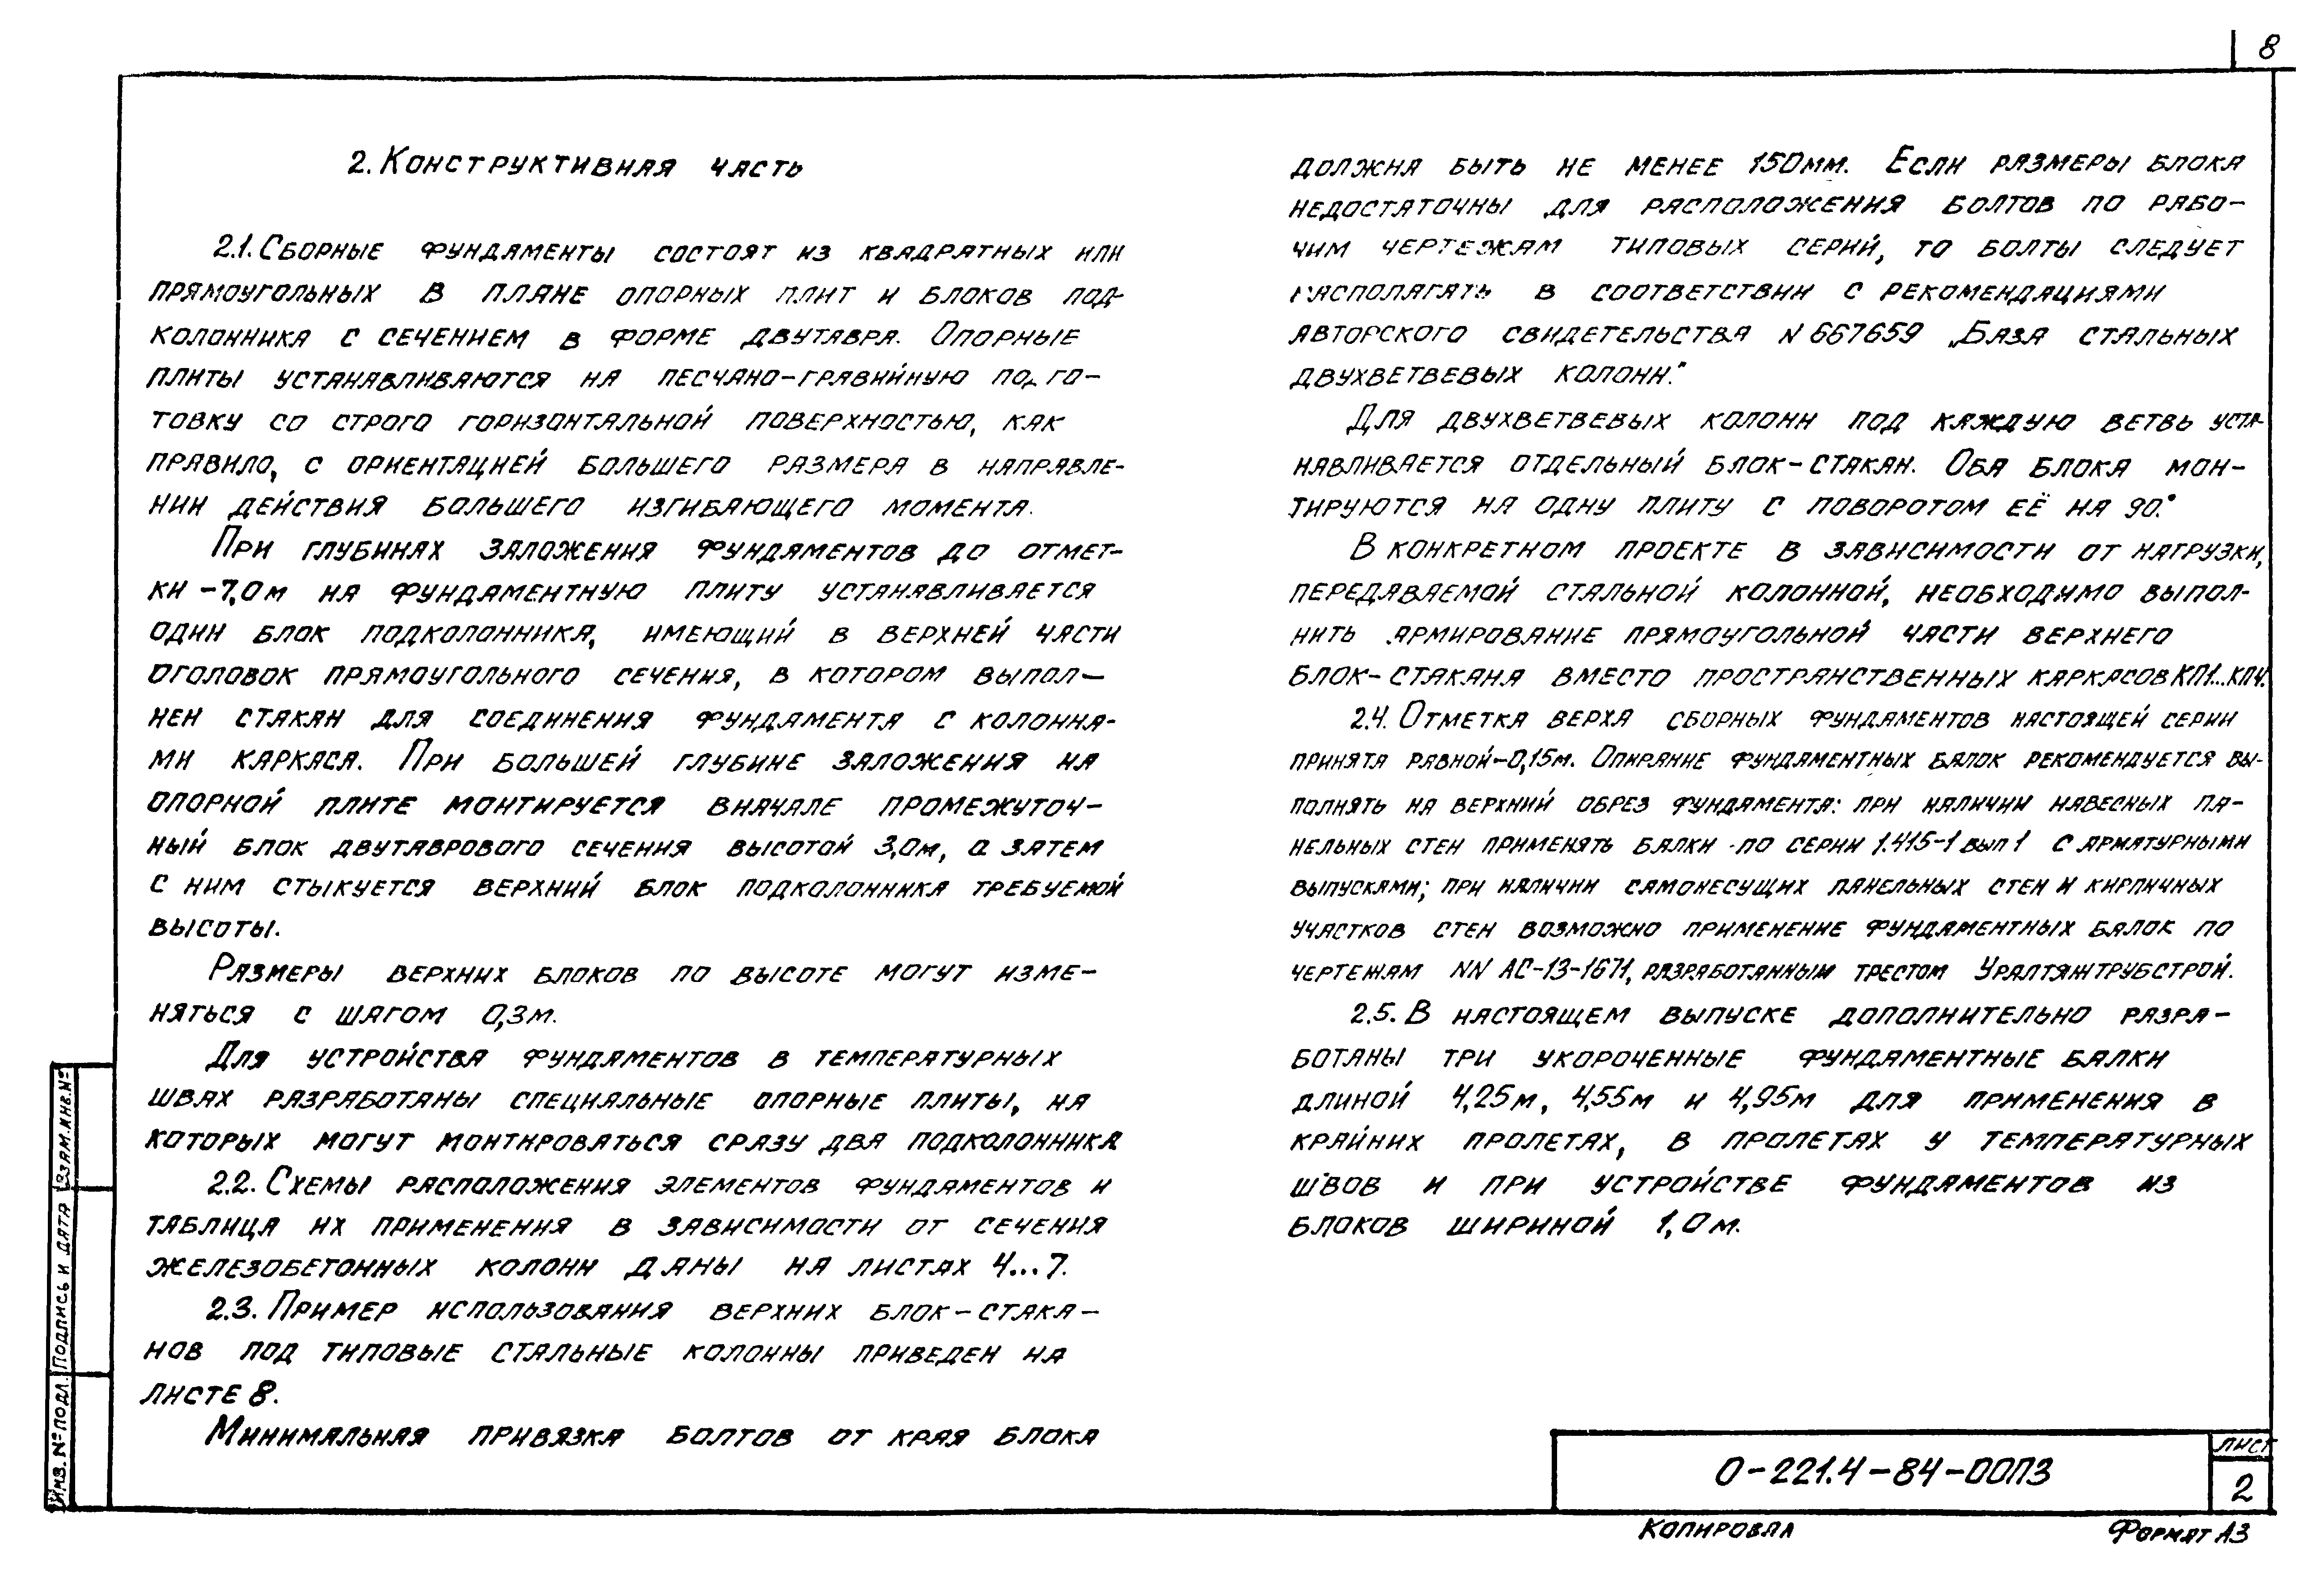 8
2. Конструктивная часть
2.1. Сборные фундаменты состоят из квадратных или
прямоугольных в плане опорных плит и блоков под-
колонника с сечением в форме двутавра. Опорные
плиты устанавливаются на песчано-гравийную подго-
товку со строго горизонтальной поверхностью, как
правило, с ориентацией большего размера в направле-
нии действия большего изгибающего момента.
При глубинах заложения фундаментов до отмет-
ки -7,0м на фундаментную плиту устанавливается
один блок подколонника, имеющий в верхней части
оголовок прямоугольного сечения, в котором выпол-
нен стакан для соединения фундамента с колонна-
ми каркаса. При большей глубине заложения на
опорной плите монтируется вначале промежуточ-
ный блок двутаврового сечения высотой 3,0м, а затем
с ним стыкуется верхний блок подколонника требуемой
высоты.
Размеры верхних блоков по высоте могут изме-
няться с шагом 0,3м.
Для устройства фундаментов в температурных
швах разработаны специальные опорные плиты, на
которых могут монтироваться сразу два подколонника
2.2. Схемы расположения элементов фундаментов и
таблица их применения в зависимости от сечения
железобетонных колонн даны на листах 4...7.
2.3. Пример использования верхних блок-стака-
нов под типовые стальные колонны приведен на
листе 8.
Минимальная привязка болтов от края блока
должна быть не менее 150мм. Если размеры блока
недостаточны для расположения болтов по рабо-
чим чертежам типовых серий, то болты следует
располагать в соответствии с рекомендациями
авторского свидетельства N 667659 „База стальных
двухветвевых колонн."
Для двухветвевых колонн под каждую ветвь уста-
навливается отдельный блок-стакан. Оба блока мон-
тируются на одну плиту с поворотом её на 90.°
В конкретном проекте в зависимости от нагрузки,
передаваемой стальной колонной, необходимо выпол-
нить армирование прямоугольной части верхнего
блок-стакана вместо пространственных каркасов КП1...КП4.
2.4. Отметка верха сборных фундаментов настоящей серии
принята равной -0,15м. Опирание фундаментных балок рекомендуется вы-
полнять на верхний обрез фундамента: при наличии навесных па-
нельных стен применять балки по серии 1.415-1 вып 1 с арматурными
выпусками; при наличии самонесущих панельных стен и кирпичных
участков стен возможно применение фундаментных балок по
чертежам NN АС-13-1671, разработанным трестом Уралтяжтрубстрой.
2.5. В настоящем выпуске дополнительно разра-
ботаны три укороченные фундаментные балки
длиной 4,25м, 4,55м и 4,95м для применения в
крайних пролетах, в пролетах у температурных
швов и при устройстве фундаментов из
блоков шириной 1,0м.
Взам.инв.№
Подпись и дата
Инв.№подл.
0-221.4-84-00ПЗ
лист
2
Копировал
Формат А3